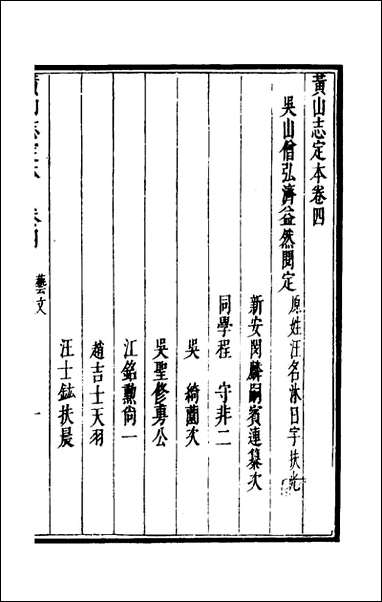 黃山志定本卷四
吳山僧弘濟益然閱定 原姓汪名沐日字扶光
新安閔麟嗣賓連纂次
同學程 守非二
吳 綺薗次
吳聖修專公
江銘勲尙一
趙吉士天羽
汪士鋐扶晨
黃山志定本 卷四 藝文 一